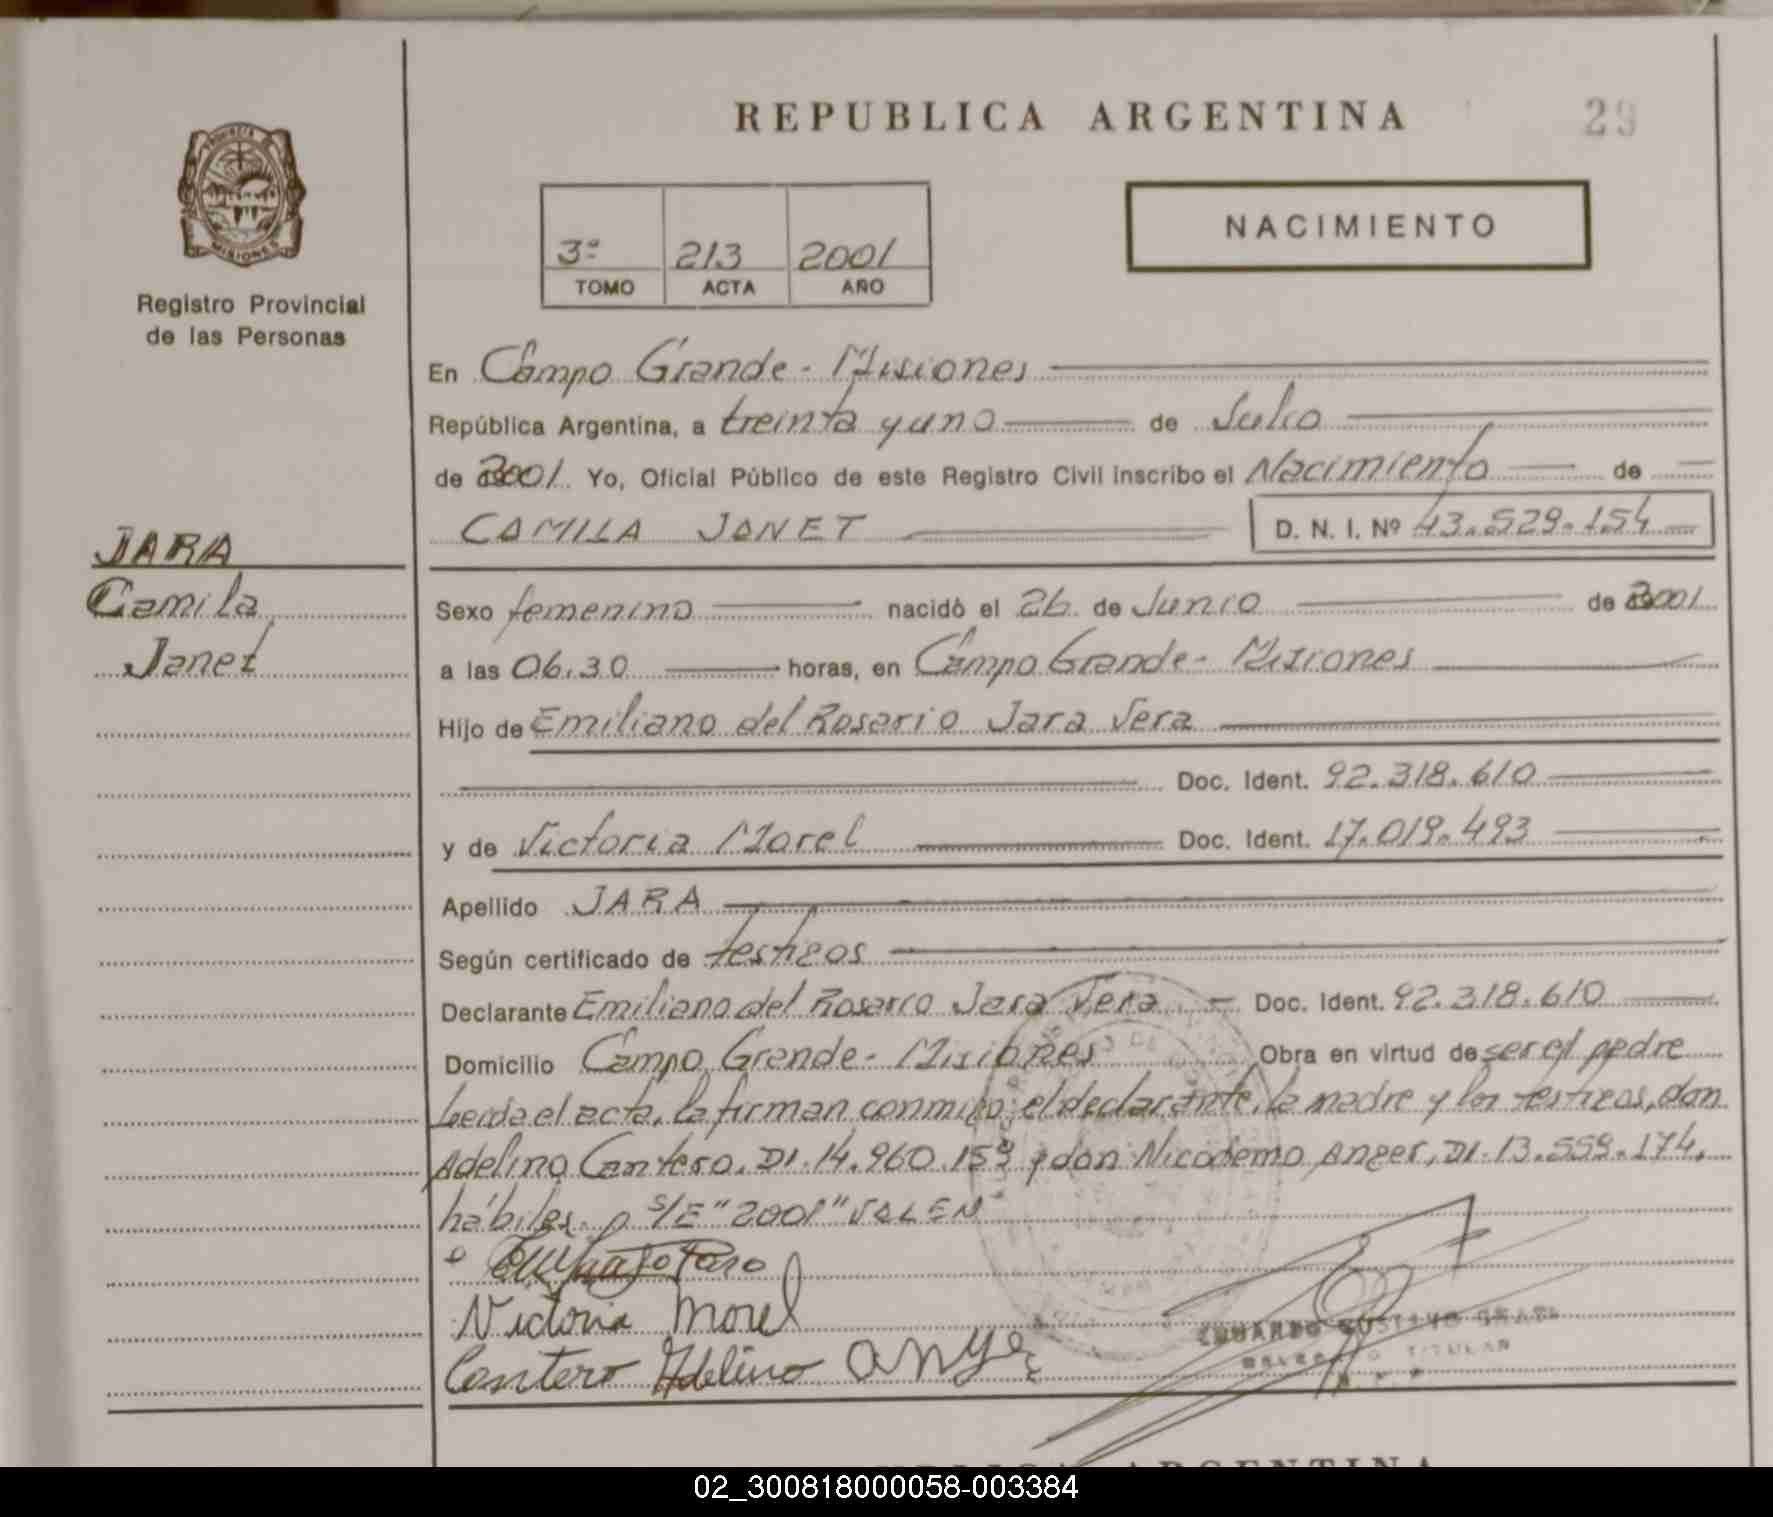 REPUBLICA ARGENTINA
29
PROVINCIA
MISIONES
Registro Provincial
de las Personas
3ª 213 2001
TOMO ACTA AÑO
NACIMIENTO
En Campo Grande - Misiones
República Argentina, a treinta y uno de Julio
de 2001 Yo, Oficial Público de este Registro Civil inscribo el Nacimiento de
CAMILA JANET D. N. I. Nº 43.529.154
JARA
Camila
Janet
Sexo femenino nacido el 26 de Junio de 2001
a las 06.30 horas, en Campo Grande - Misiones
Hijo de Emiliano del Rosario Jara Vera
Doc. Ident. 92.318.610
y de Victoria Morel Doc. Ident. 17.019.493
Apellido JARA
Según certificado de testigos
Declarante Emiliano del Rosario Jara Vera Doc. Ident. 92.318.610
Domicilio Campo Grande - Misiones Obra en virtud de ser el padre
Leida el acta, la firman conmigo el declarante, la madre y los testigos, don
Adelino Cantero. DI. 14.960.159 y don Nicodemo Anger, DI. 13.559.174,
hábiles. S/E "2001" VALEN
Victoria Morel
Cantero Adelino
EDUARDO GUSTAVO
TITULAR
REPUBLICA ARGENTINA
02_300818000058-003384